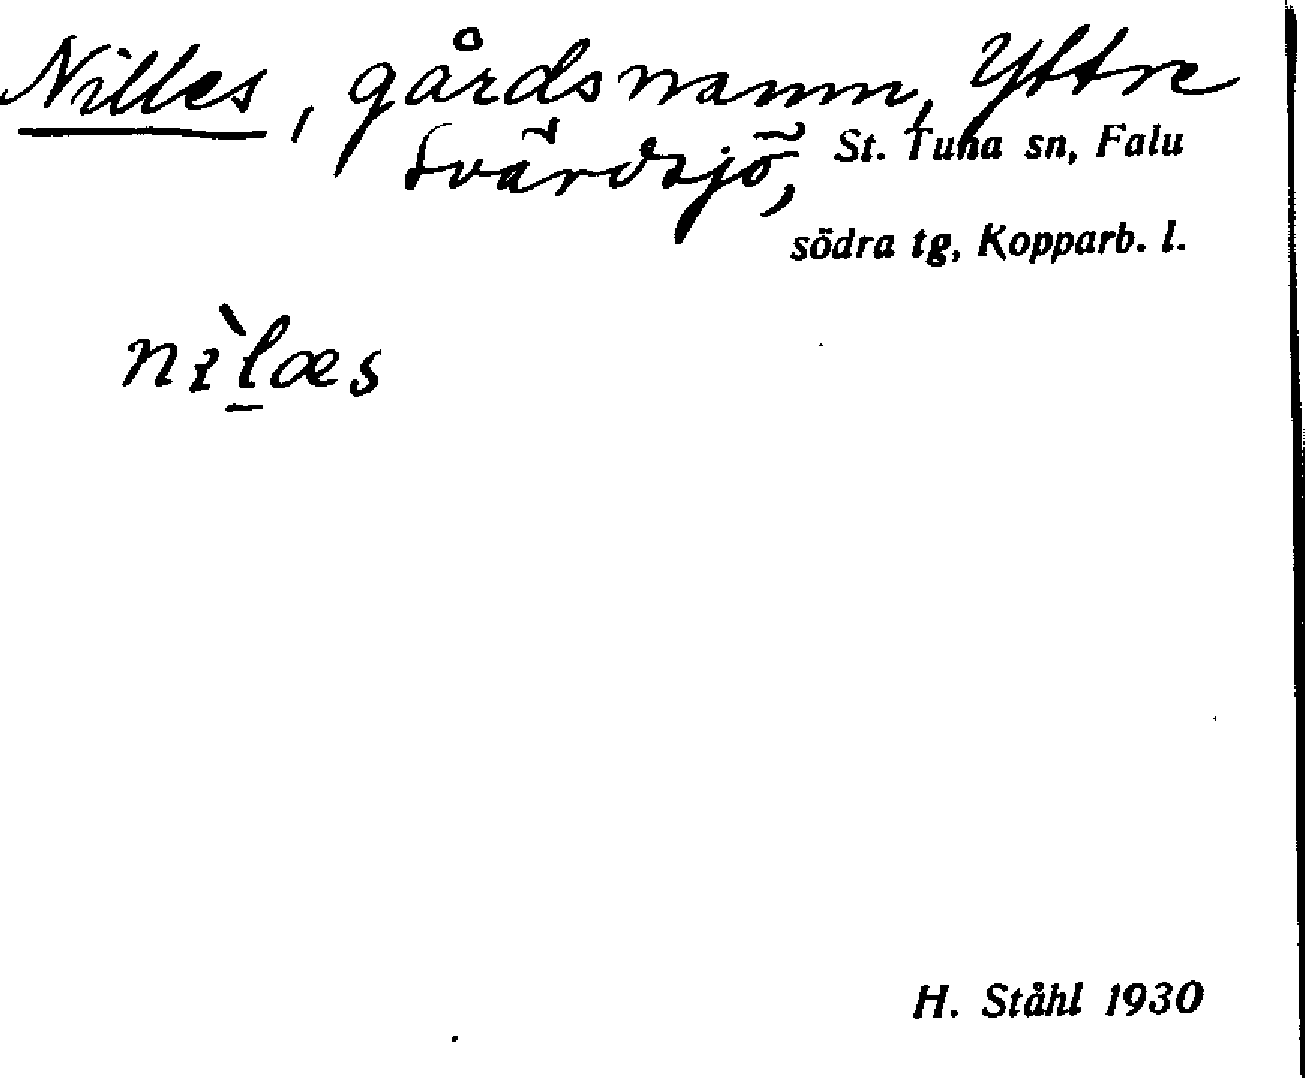 Nilles, gårdsnamn, Yttre
Svärdsjö, St. Tuna sn, Falu
södra tg, Kopparb. l.
nɪ̀l̠æs
H. Ståhl 1930